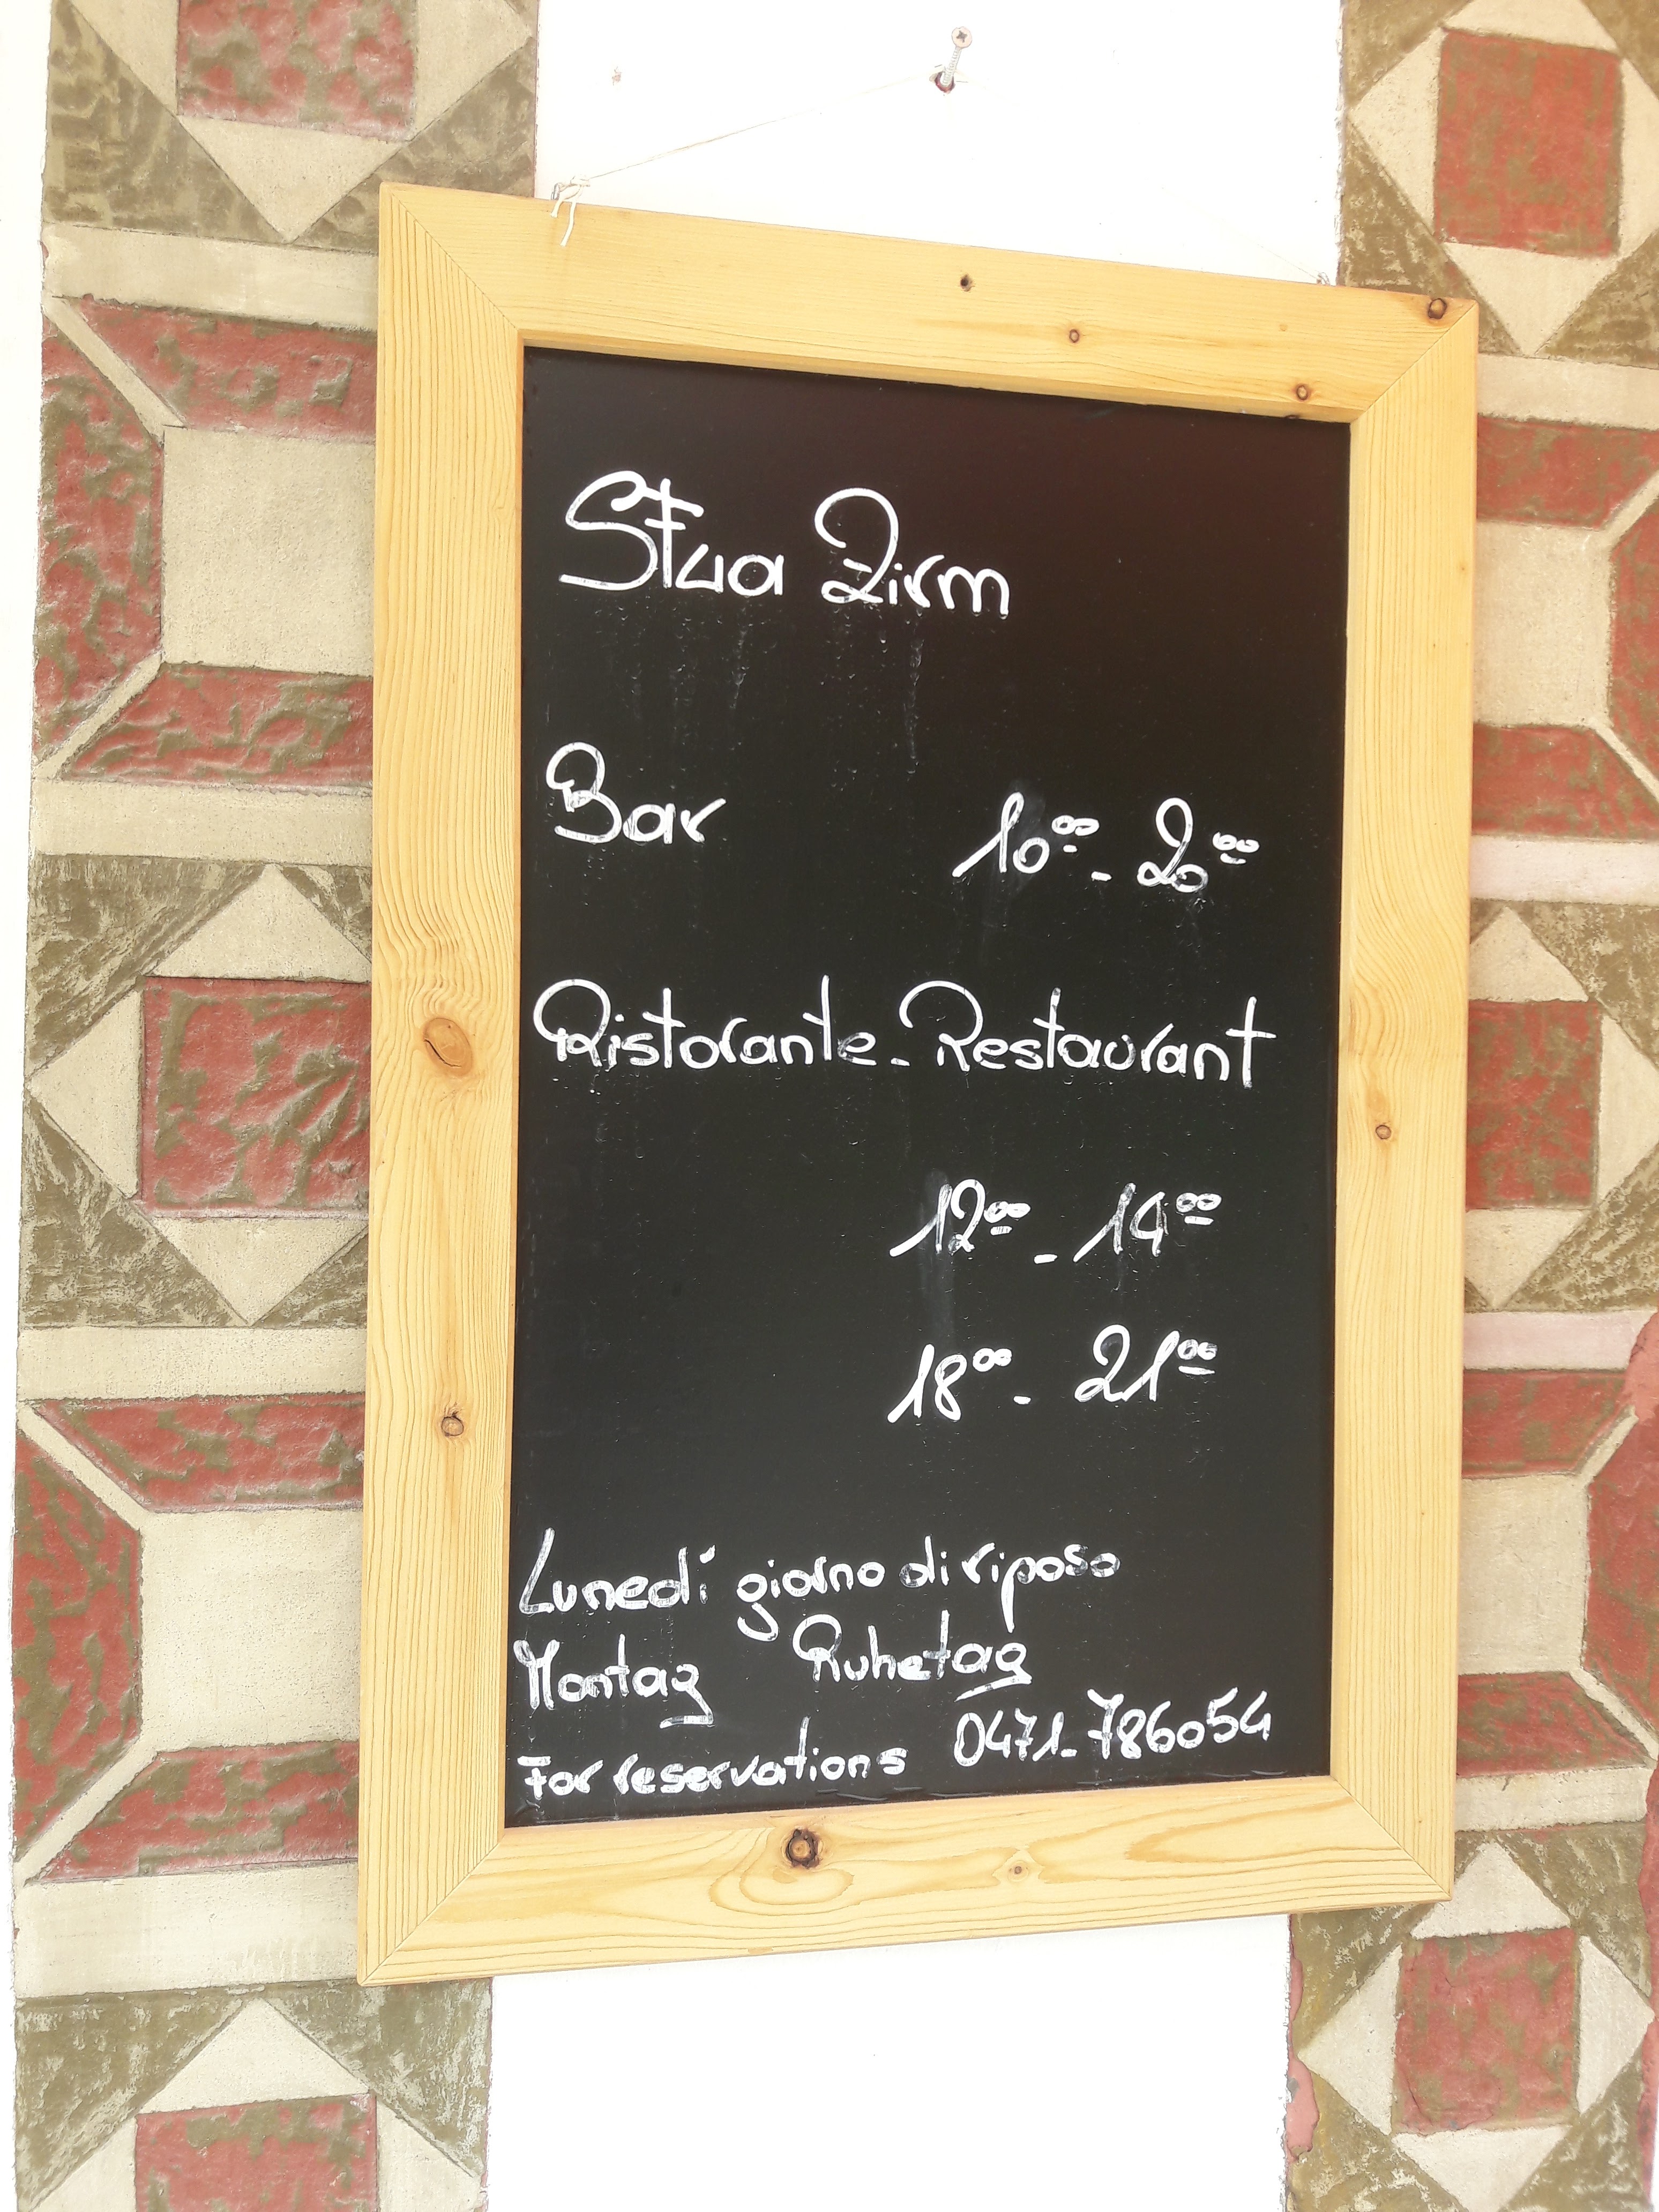 Stua Zirm
Bar 10⁰⁰ - 20⁰⁰
Ristorante - Restaurant
12⁰⁰ - 14⁰⁰
18⁰⁰ - 21⁰⁰
Lunedí giorno di riposo
Montag Ruhetag
For reservations 0471-786054